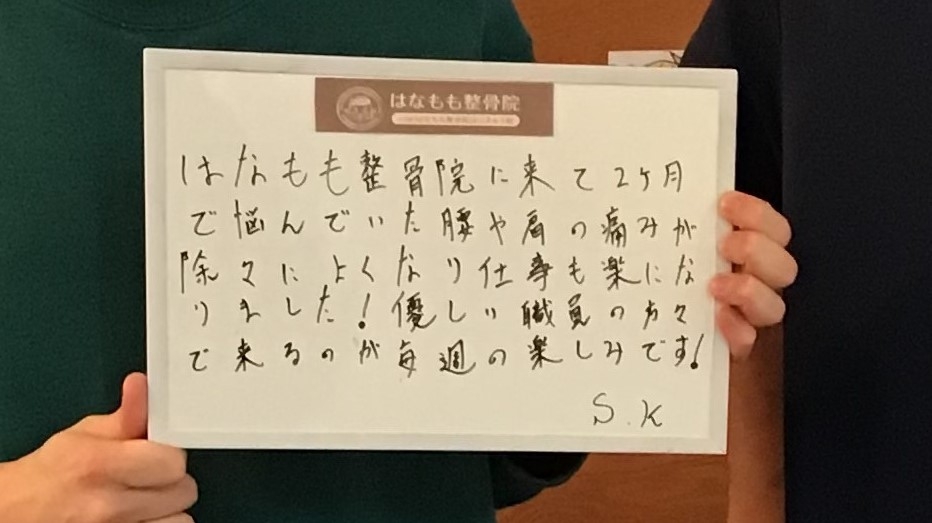 はなもも整骨院
はなもも整骨院に来て2ヶ月
で悩んでいた腰や肩の痛みが
除々によくなり仕事も楽にな
りました!優しい職員の方々
で来るのが毎週の楽しみです!
S.K